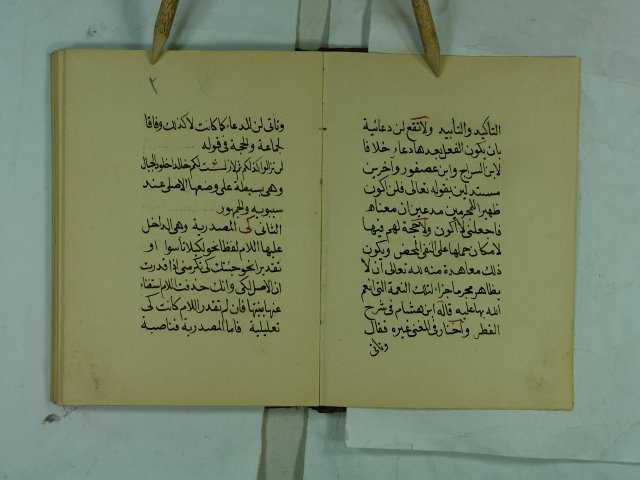 التأكيد والتأبيد ولا تقع لن دعائية
بان يكون الفعل بعدها دعاء خلافا
لابن السراج وابن عصفور وآخرين
مستدلين بقوله تعالى فلن اكون
ظهيرا للمجرمين مدعين ان معناه
فاجعلني لا اكون ولا حجة لهم فيها
لامكان حملها على النفي المحض ويكون
ذلك معاهدة منه لله تعالى ان لا
يظاهر مجرما جزاء لتلك النعمة التي انعم
الله بها عليه قاله ابن هشام في شرح
القطر واختار في المغني غيره فقال
وتأتي
٢
وتأتي لن للدعاء كما كانت لا كذلك وفاقا
لجماعة والحجة في قوله
لن تزالوا كذلكم ثم لا زلت لكم خالدا خلود الجبال
وهي بسيطة على وضعها الاصلي عند
سيبويه والجمهور
الثاني كي المصدرية وهي الداخل
عليها اللام لفظا نحو لكيلا تأسوا او
تقديرا نحو جئتك كي تكرمني اذا قدرت
ان الاصل لكي وانك حذفت اللام استغناء
عنها بنيتها فان لم تقدر اللام كانت كي
تعليلية فاما المصدرية فناصبة